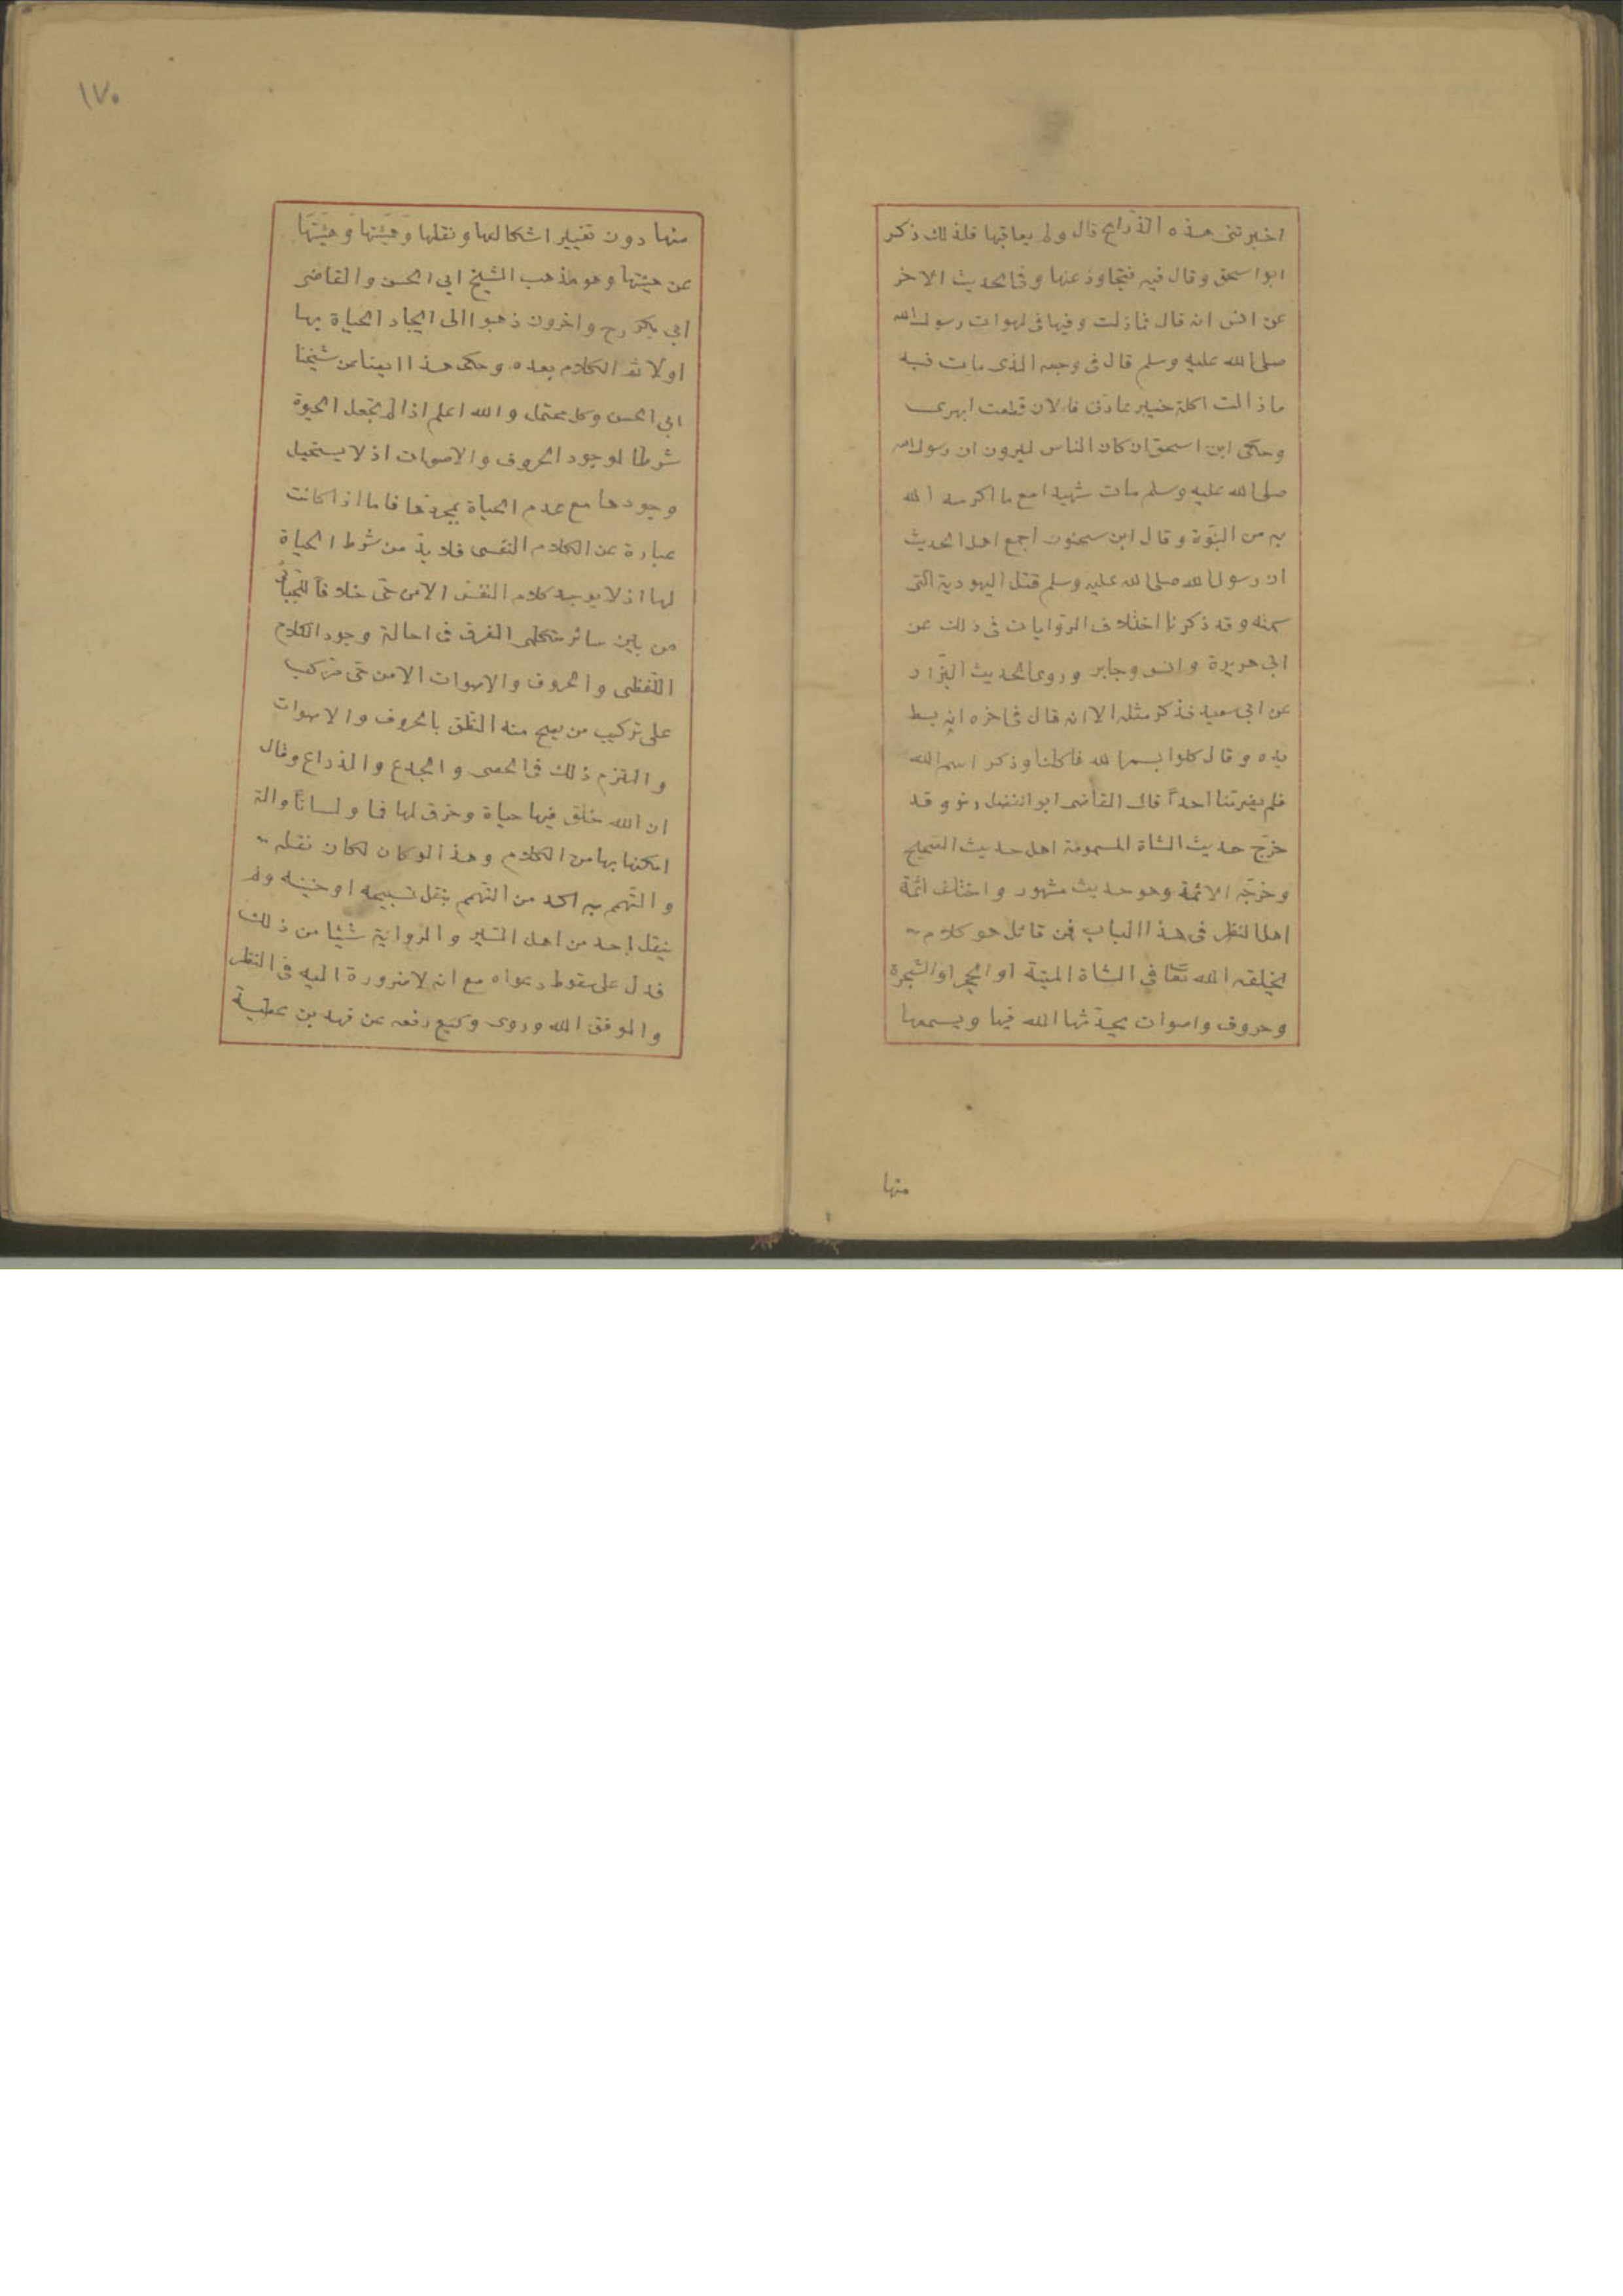 اخبرتنى هذه الذراع قال ولم يعاقبها فلذلك ذكر
ابو اسحق وقال فيه فتجاوز عنها وفى الحديث الاخر
عن انس انه قال فما زلت وفيها فى لهوات رسول الله
صلى الله عليه وسلم قال فى وجعه الذى مات فيه
ما زالت اكلة خيبر عادنى فالان قطعت ابهرى
وحكى ابن اسحق ان كان الناس ليرون ان رسول الله
صلى الله عليه وسلم مات شهيدا مع ما اكرمه الله
به من النبّوة وقال ابن سحنون اجمع اهل الحديث
ان رسول الله صلى الله عليه وسلم قتل اليهودية التى
سمته وقد ذكرنا اختلاف الروايات فى ذلك عن
ابى هريرة وانس وجابر وروى الحديث البزّار
عن ابى سعيد فذكر مثله الا انه قال فى اخره انه بسط
يده وقال كلوا بسم الله فاكلنا وذكر اسم الله
فلم يضرّ منا احداً قال القاضى ابو الفضل رضو وقد
خرّج حديث الشاة المسمومة اهل حديث الصحيح
وخرّجه الائمة وهو حديث مشهور واختلف ائمة
اهل النظر فى هذا الباب فمن قائل هو كلام
يخلقه الله تعا فى الشاة الميتة او الحجر او الشجرة
وحروف واصوات يحدثها الله فيها ويسمعها
منها
١٧٠
منها دون تغيير اشكالها ونقلها وهيئتها وهيئتها
عن هيئتها وهو مذهب الشيخ ابى الحسن والقاضى
ابى بكر رح واخرون ذهبوا الى ايجاد الحياة بها
اولا ثم الكلام بعده وحكى هذا ايضا عن شيخنا
ابى الحسن وكل محتمل والله اعلم اذا لم يجعل الحيوة
شرطا لوجود الحروف والاصوات اذ لا يستحيل
وجودها مع عدم الحياة بمجردها فاما اذا كانت
عبارة عن الكلام النفسى فلا بدّ من شرط الحياة
لها اذ لا يوجد كلام النفس الا من حى خلافاً للجبائى
من بين سائر متكلمى الفرق فى احالة وجود الكلام
اللفظى والحروف والاصوات الا من حى مركب
على تركيب من يصح منه النطق بالحروف والاصوات
والتزم ذلك فى الحصى والجذع والذراع وقال
ان الله خلق فيها حياة وخرق لها فما ولساناً والة
امكنها بها من الكلام وهذا لو كان لكان نقله
والتهم به اكد من التهمم بنقل تسبيحه او حنينه ولم
ينقل احد من اهل السير والرواية شيئا من ذلك
فدل على سقوط دعواه مع انه لا ضرورة اليه فى النظر
والموفق الله وروى وكيع رفعه عن فهد بن عطية